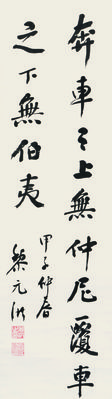 奔車之上無仲尼覆車
之下無伯夷
甲子仲春
黎元洪